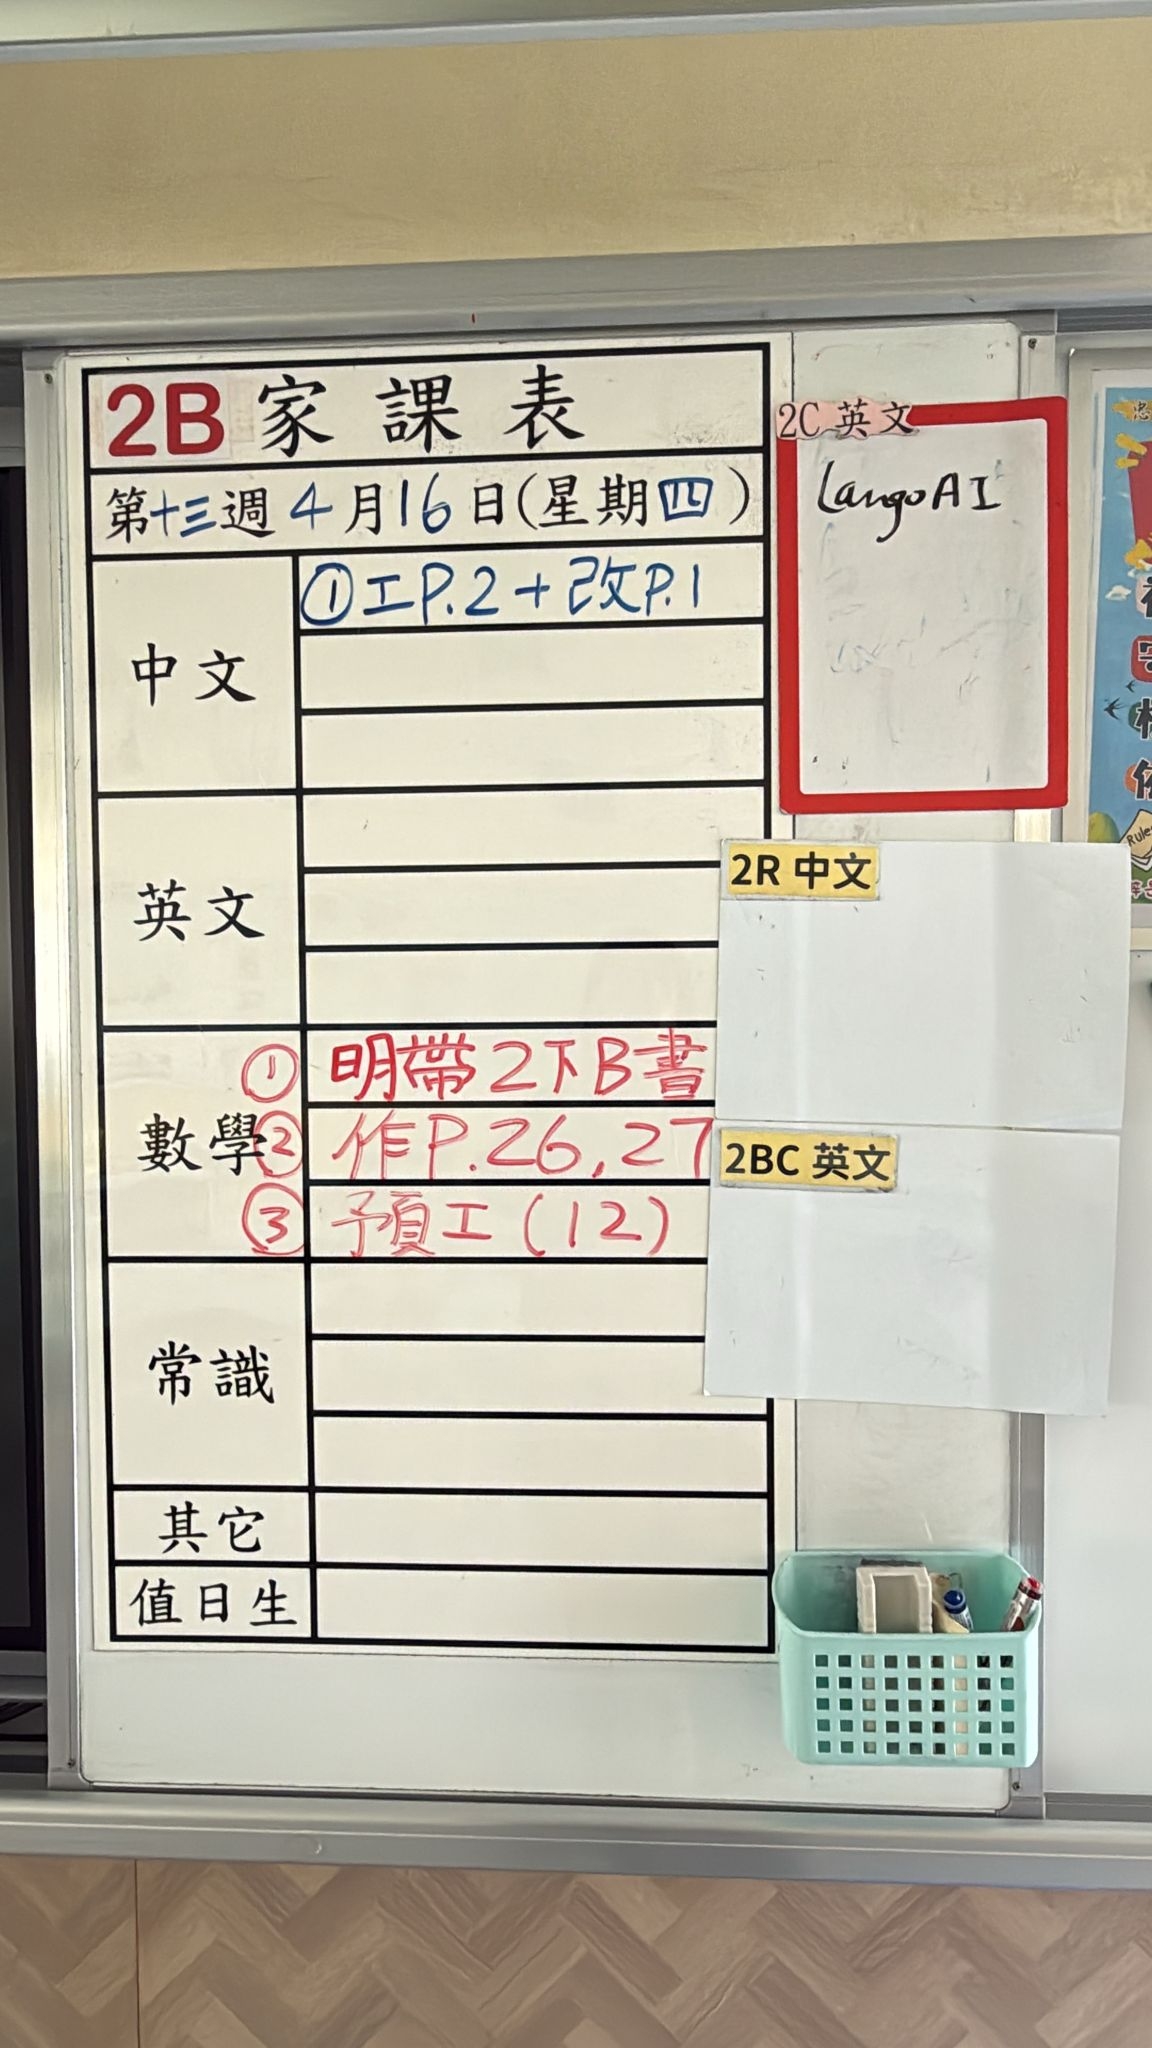 2B 家課表
第十三週 4月16日(星期四)
中文
①工P.2+改P.1
英文
數學
① 明帶2下B書
② 作P.26,27
③ 預工(12)
常識
其它
值日生
2C 英文
LangoAI
2R 中文
2BC 英文
Rules